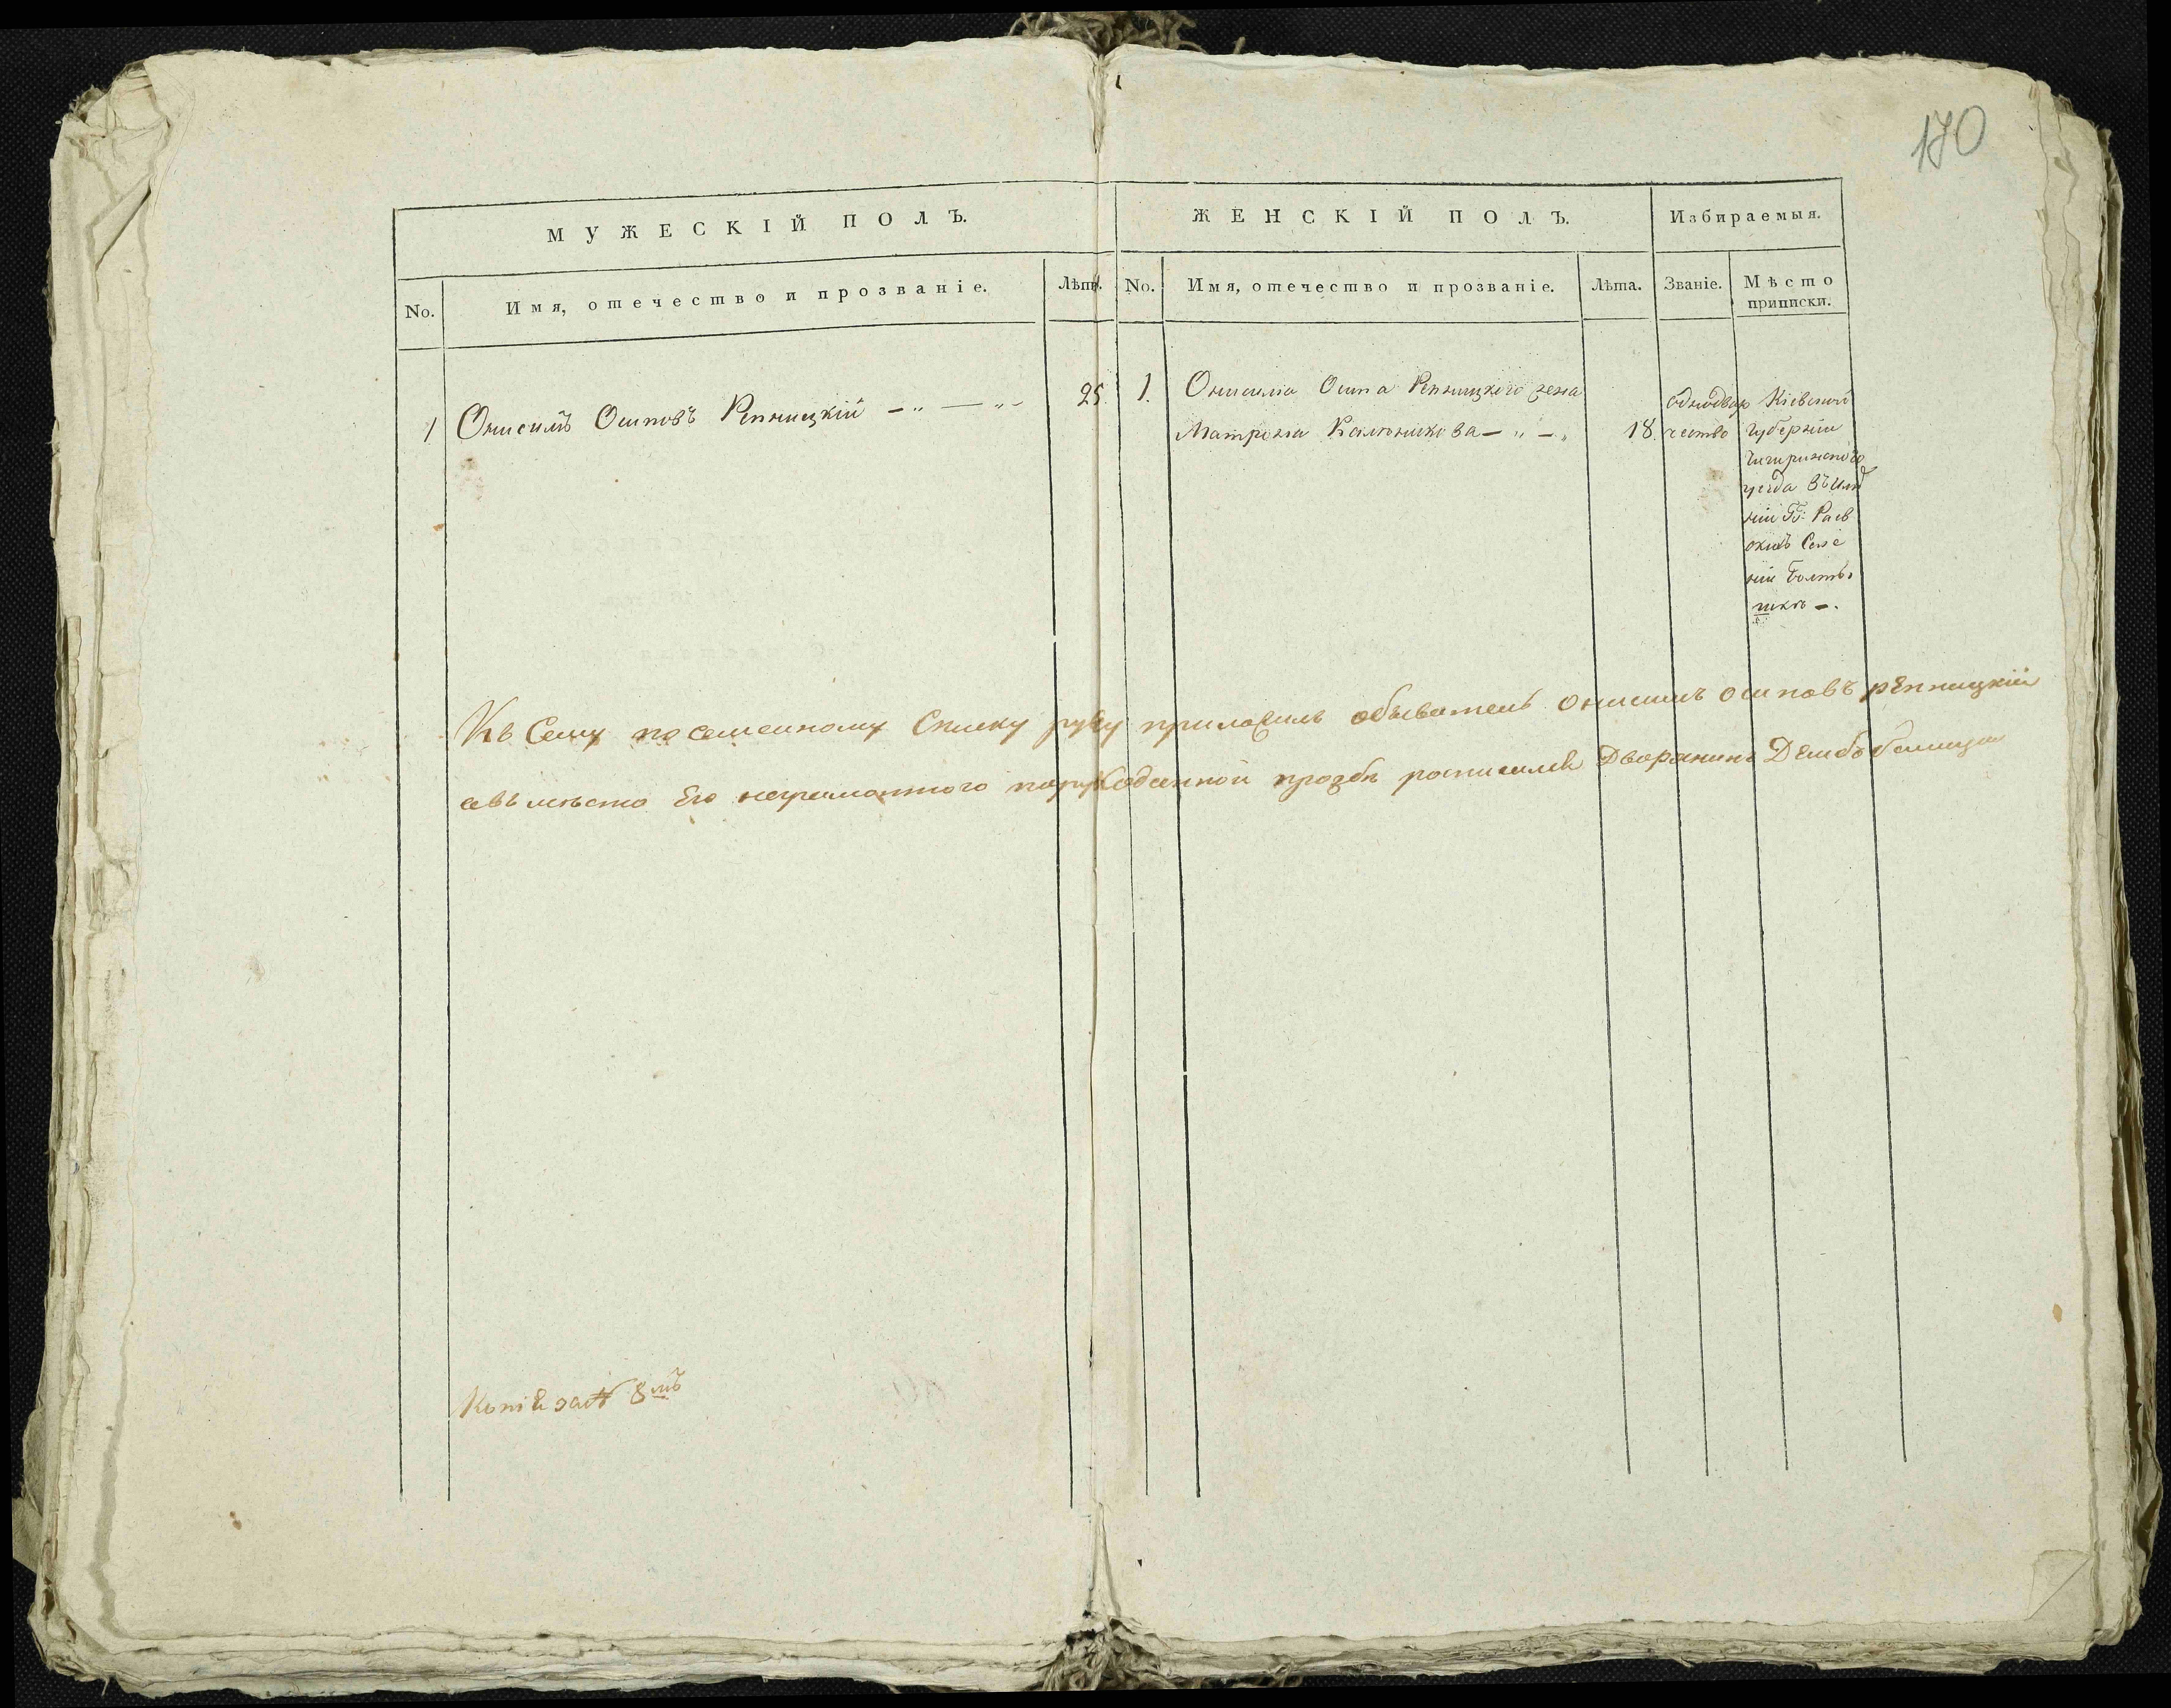 170
МУЖЕСКІЙ ПОЛЪ.
ЖЕНСКІЙ ПОЛЪ.
Избираемыя.
No.
Имя, отечество и прозваніе.
Лѣты.
No.
Имя, отечество и прозваніе.
Лѣта.
Званіе.
Мѣсто
приписки.
1 Онисимъ Осиповъ Репницкій 25.
1. Онисима Осипа Репницкого жена
Матрона 18.
однодвор
чество
Кіевской
губерніи
Чигиринского
уезда въ имѣ
ніи ГГ. Раев
скихъ Селе
ніи Болты
шкѣ -.
Къ Сему посемейному Списку руку приложилъ обыватель онисимъ осиповъ рѣпницкій
авъ мѣсто Его неграмотного прозбѣ росписался Дворянинъ
Копія за N 8мъ